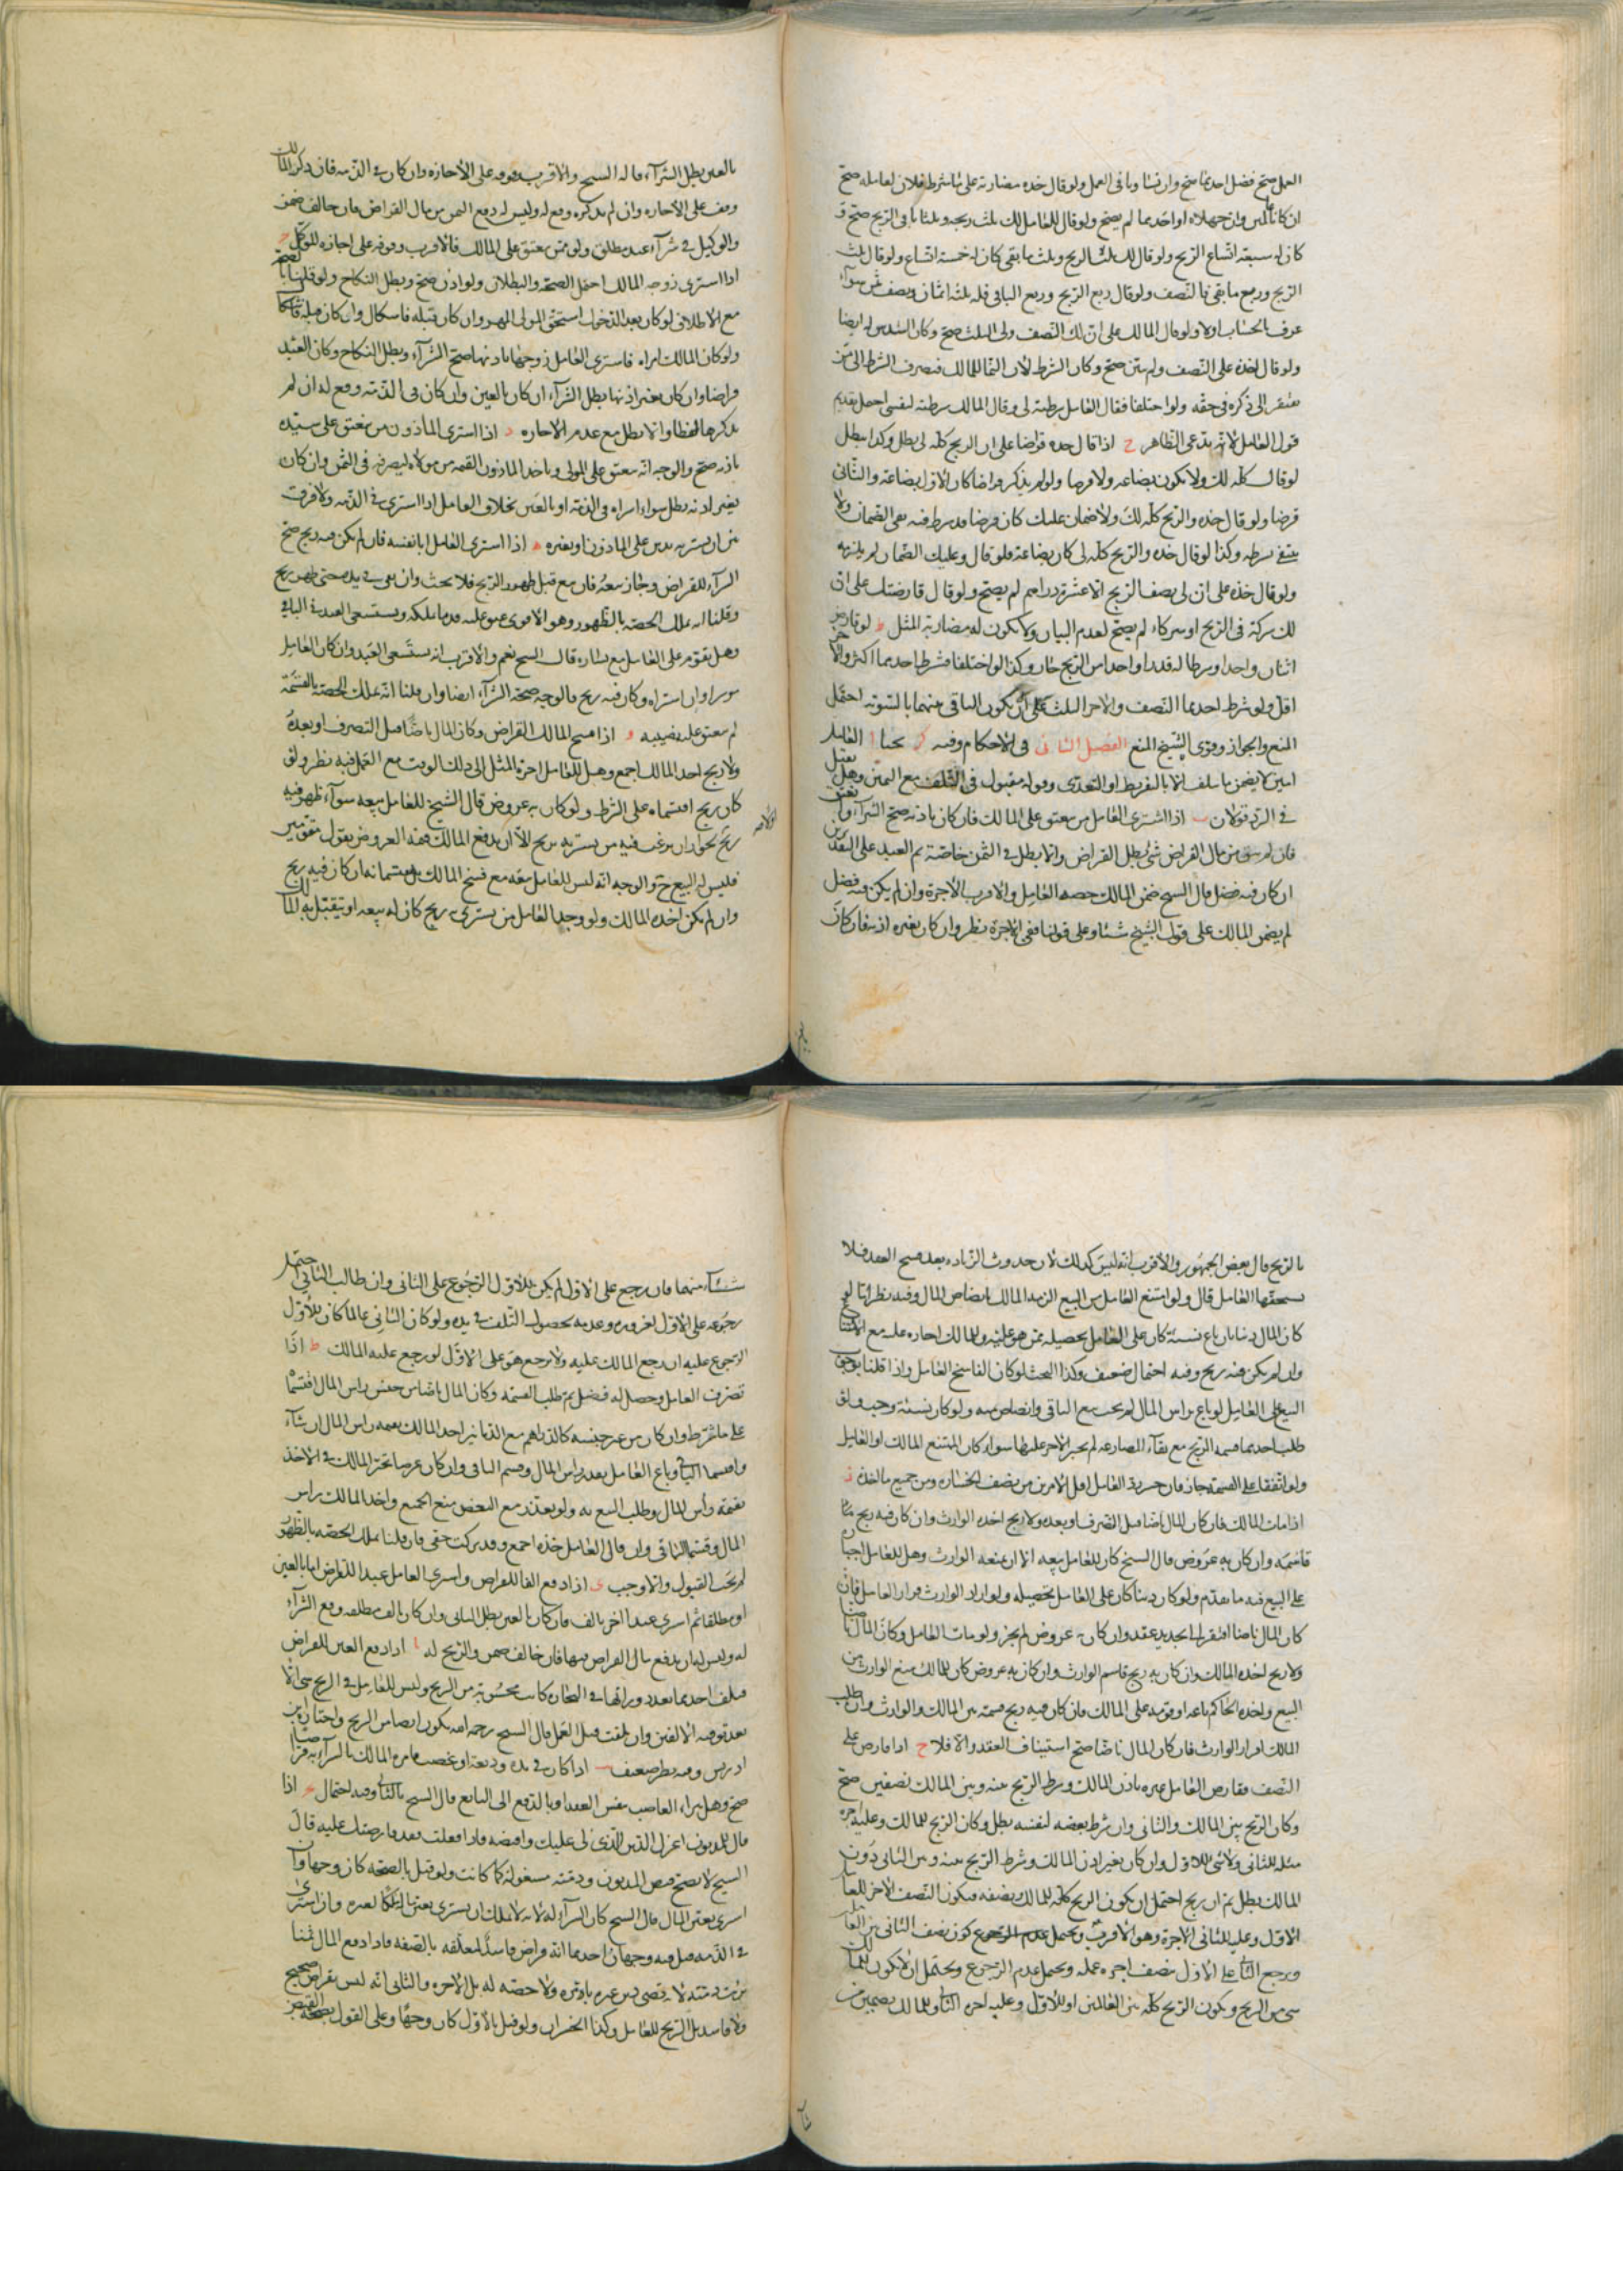 العمل صح فضل احدهما صح وان تساويا في العمل ولو قال خذه مضاربة على ما شرط فلان لعامله صح
ان كانا عالمين وان جهلاه او احدهما لم يصح ولو قال للعامل لك ثلث ربحه وثلثا باقي الربح صح و
كان له سبعة اتساع الربح ولو قال لك ثلث الربح وثلث ما بقي كان له خمسة اتساع ولو قال ثلث
الربح وربع ما بقي فالنصف ولو قال ربع الربح وربع الباقي فله ثلثة اثمان ونصف ثمن سواء
عرف الحساب اولا ولو قال المالك على ان لك النصف ولي السدس صح وكان السدس له ايضا
ولو قال خذه على النصف ولم يبين صح وكان الشرط لان النما للمالك فينصرف الشرط الى من
يفتقر الى ذكره في حقه ولو اختلفا فقال العامل شرطته لي وقال المالك شرطته لنفسي احتمل تقديم
قول العامل لانه يدعي الظاهر ح اذا قال خذه قراضا على ان الربح كله لي بطل وكذا يبطل
لو قال كله لك ولا يكون بضاعة ولا قرضا ولو لم يذكر قراضا كان الاول بضاعة والثاني
قرضا ولو قال خذه والربح كله لك ولا ضمان عليك كان قرضا قد شرط فيه نفي الضمان ولا
ينتفي بشرطه وكذا لو قال خذه والربح كله لي كان بضاعة فلو قال وعليك الضمان لم يلزمه
ولو قال خذه على ان لي نصف الربح الا عشرة دراهم لم يصح ولو قال قارضتك على ان
لك شركة في الربح او شركاء لم يصح لعدم البيان ولا يكون له مضاربة المثل ط لو قارض
اثنان واحدا وشرطا له قدرا واحدا من الربح جاز وكذا لو اختلفا فشرط احدهما اكثر والاخر
اقل ولو شرط احدهما النصف والاخر الثلث على ان يكون الباقي بينهما بالسوية احتمل
المنع والجواز وقوى الشيخ المنع الفصل الثاني في الاحكام وفيه كر بحثا ا العامل
امين لا يضمن ما يتلف الا بالتفريط او التعدي وقوله مقبول في التلف مع اليمين وهل يقبل
في الرد قولان ب اذا اشترى العامل من يعتق على المالك فان كان باذنه صح الشراء وانعتق
فان لم يبق من مال القراض شئ بطل القراض والا بطل في الثمن خاصة ثم العبد على النقدين
ان كان فيه فضل قال الشيخ ضمن المالك حصة العامل والاقرب الاجرة وان لم يكن فيه فضل
لم يضمن المالك على قول الشيخ شيئا وعلى قولنا ففي الاجرة نظر وان كان بغير اذنه فان كان
بالعين بطل الشراء قاله الشيخ والاقرب وقوفه على الاجازة وان كان في الذمة فان ذكر المالك
وقف على الاجازة وان لم يذكره وقع له وليس له دفع الثمن من مال القراض فان خالف ضمن
والوكيل في شراء عبد مطلق ولو ممن يعتق على المالك فالاقرب وقوفه على اجازة للموكل ج
اذا اشترى زوجة المالك احتمل الصحة والبطلان ولو اذن صح وبطل النكاح ولو قلنا بالصحة
مع الاطلاق لو كان بعد الدخول استحق المولى المهر وان كان قبله فاشكال وان كان قبله
ولو كان المالك امراة فاشترى العامل زوجها باذنها صح الشراء وبطل النكاح وكان العبد
قراضا وان كان بغير اذنها بطل الشراء ان كان بالعين وان كان في الذمة وقع له ان لم
يذكرها لفظا والا بطل مع عدم الاجازة د اذا اشترى الماذون من يعتق على سيده
باذنه صح والوجه انه يعتق على المولى وياخذ الماذون القيمة من مولاه ليصرفه في الثمن وان كان
بغير اذنه بطل سواء اشتراه في الذمة او بالعين بخلاف العامل اذا اشترى في الذمة ولا فرق
بين ان يشتريه بدين على الماذون او بغيره ه اذا اشترى العامل ابا نفسه فان لم يكن فيه ربح صح
الشراء للقراض وجاز بيعه فان بيع قبل ظهور الربح فلا بحث وان بقي في يده حتى ظهر ربح
وقلنا انه يملك الحصة بالظهور وهو الاقوى عتق عليه قدر ما ملكه ويستسعى العبد في الباقي
وهل يقوم على العامل مع يساره قال الشيخ نعم والاقرب انه يستسعى العبد وان كان العامل
موسرا وان اشتراه وكان فيه ربح فالوجه صحة الشراء ايضا وان قلنا انه يملك الحصة بالقسمة
لم يعتق عليه نصيبه و اذا فسخ المالك القراض وكان المال ناضا قبل التصرف او بعده
ولا ربح اخذ المالك اجمع وهل للعامل اجرة المثل الى ذلك الوقت مع العمل فيه نظر ولو
كان ربح اقتسماه على الشرط ولو كان به عروض قال الشيخ للعامل بيعه سواء ظهر فيه
ربح نحو ان يرغب فيه من يشتريه بربح الا ان يدفع المالك قيمة العروض بقول مقومين
فليس له البيع ح والوجه انه ليس للعامل بيعه مع فسخ المالك بل يقتسمانه ان كان فيه ربح
وان لم يكن اخذه المالك ولو وجد العامل من يشتري بربح كان له بيعه او يتقبل به المالك
بالربح قال بعض الجمهور والاقرب انه ليس كذلك لان حدوث الزيادة بعد فسخ العقد فلا
يستحقها العامل قال ولو امتنع العامل من البيع الزمه المالك بانضاض المال وفيه نظر اما لو
كان المال دينا بان باع نسيئة كان على العامل تحصيله ممن هو عليه وللمالك اجباره عليه مع الامتناع
وان لم يكن فيه ربح وفيه احتمال ضعيف وكذا البحث لو كان الفاسخ العامل واذا قلنا بوجوب
البيع على العامل لو باع براس المال لم يجب بيع الباقي وانضاضه ولو كان نسيئة وجب ولو
طلب احدهما قسمة الربح مع بقاء المضاربة لم يجبر الاخر عليها سواء كان الممتنع المالك او العامل
ولو اتفقا على القسمة جاز فان خسر رد العامل اقل الامرين من نصف الخسارة ومن جميع ما اخذه ز
اذا مات المالك فان كان المال ناضا قبل التصرف او بعده ولا ربح اخذه الوارث وان كان فيه ربح
قاسمه وان كان به عروض قال الشيخ كان للعامل بيعه الا ان يمنعه الوارث وهل للعامل اجباره
على البيع فيه ما تقدم ولو كان دينا كان على العامل تحصيله ولو اراد الوارث قرار العامل فان
كان المال ناضا افتقر الى تجديد عقد وان كان به عروض لم يجز ولو مات العامل وكان المال ناضا
ولا ربح اخذه المالك وان كان به ربح قاسم الوارث وان كان به عروض كان للمالك منع الوارث من
البيع ولاخذه الحاكم باعه او قومه على المالك فان كان فيه ربح قسمه بين المالك والوارث وان طلب
المالك اقرار الوارث فان كان المال ناضا صح استيناف العقد والا فلا ح اذا قارض على
النصف فقارض العامل غيره باذن المالك وشرط الربح بينه وبين المالك نصفين صح
وكان الربح بين المالك والثاني وان شرط بعضه لنفسه بطل وكان الربح للمالك وعليه اجرة
مثله للثاني ولا شئ للاول وان كان بغير اذن المالك وشرط الربح بينه وبين الثاني دون
المالك بطل ثم ان ربح احتمل ان يكون الربح كله للمالك نصفه ويكون النصف الاخر للعامل
الاول وعليه للثاني الاجرة وهو الاقرب ويحتمل كون نصف الثاني بين العاملين
ويرجع الثاني على الاول بنصف اجرة عمله ويحتمل عدم الرجوع ويحتمل ان لا يكون للمالك
شئ من الربح ويكون الربح كله بين العاملين او للاول وعليه اجرة الثاني وللمالك تضمين من
شاء منهما فان رجع على الاول لم يكن للاول الرجوع على الثاني وان طالب الثاني احتمل
رجوعه على الاول لغروره وعدمه بحصول التلف في يده ولو كان الثاني عالما كان للاول
الرجوع عليه ان رجع المالك عليه ولا يرجع هو على الاول لو رجع عليه المالك ط اذا
تصرف العامل وحصل له فضل ثم طلب القسمة وكان المال ناضا من جنس راس المال اقتسما
على ما شرط وان كان من غير جنسه كالدراهم مع الدنانير اخذ المالك بقيمة راس المال ان شاء
واقتسما الباقي او باع العامل بقدر راس المال وقسم الباقي وان كان عرضا تخير المالك في الاخذ
بقيمة راس المال وطلب البيع به ولو تعذر بيع البعض بيع الجميع واخذ المالك راس
المال وقسما الباقي وان قال العامل خذه اجمع وقد تركت حقي فان قلنا يملك الحصة بالظهور
لم يجب القبول والا وجب ى اذا دفع الفا للقراض واشترى العامل عبدا للقراض اما بالعين
او مطلقا ثم اشترى عبدا اخر بالف فان كان بالعين بطل الثاني وان كان بالف مطلقة وقع الشراء
له وليس له ان يدفع مال القراض فيها فان خالف ضمن والربح له يا اذا دفع العين للقراض
فتلف احدهما بعد دورانها في التجارة كانت محسوبة من الربح وليس للعامل في الربح شئ الا
بعد توفية الالفين وان تلفت قبل العمل قال الشيخ رحمه الله يكون ايضا من الربح واختاره ابن
ادريس وفيه نظر ضعيف ب اذا كان في يده وديعة او غصب فامره المالك بالشراء به قراضا
صح وهل يبراء الغاصب بنفس العقد او بالدفع الى البايع قال الشيخ بالثاني وفيه احتمال ج اذا
قال للمديون اعزل الدين الذي لي عليك واقبضه فاذا فعلت فقد قارضتك عليه قال
الشيخ لا يصح قبض المديون وذمته مشغولة كما كانت ولو قيل بالصحة كان وجها وان
اشترى بعين المال قال الشيخ كان الشراء له لانه لا يملك ان يشتري بعين ماله لغيره وان اشترى
في الذمة قيل فيه وجهان احدهما انه قراض فاسد لمعلقه بالصفة فاذا دفع المال ثمنا
برئت ذمته لانه يقضي دين غيره باذنه ولا حصة له بل الاجرة والثاني انه ليس بقراض صحيح
ولا فاسد بل الربح للعامل وكذا الخسران ولو قيل بالاول كان وجها وعلى القول بصحة القبض